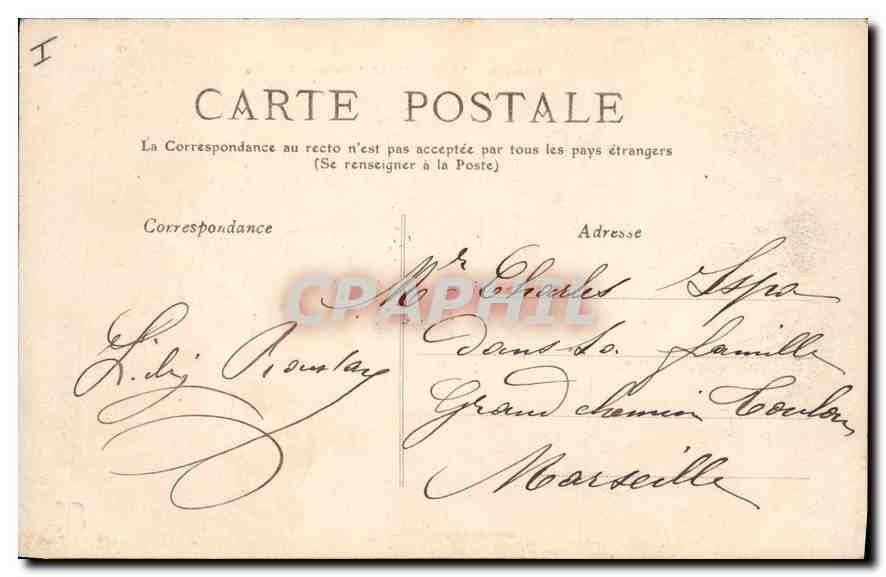 I
CARTE POSTALE
La Correspondance au recto n'est pas acceptée par tous les pays étrangers
(Se renseigner à la Poste)
Correspondance
Adresse
CPAPHIL
Mr Charles Ispa
dans sa famille
Grand chemin Toulon
Marseille